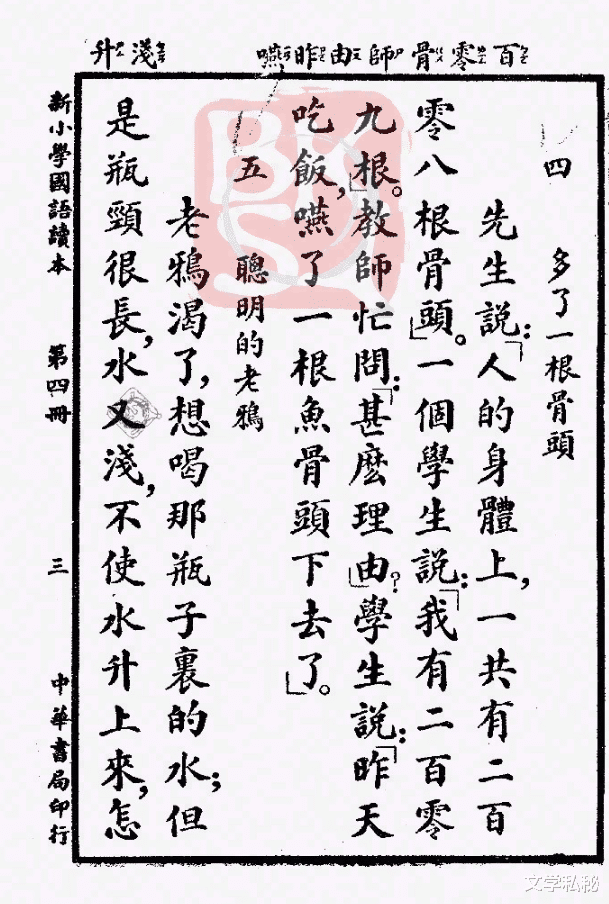 百零骨師由昨嚥 淺升
四 多了一根骨頭
先生說:「人的身體上,一共有二百
零八根骨頭。」一個學生說:「我有二百零
九根。」教師忙問:「甚麼理由?」學生說:「昨天
吃飯,嚥了一根魚骨頭下去了。」
五 聰明的老鴉
老鴉渴了,想喝那瓶子裏的水;但
是瓶頸很長,水又淺,不使水升上來,怎
新小學國語讀本 第四冊 三 中華書局印行
文学私秘